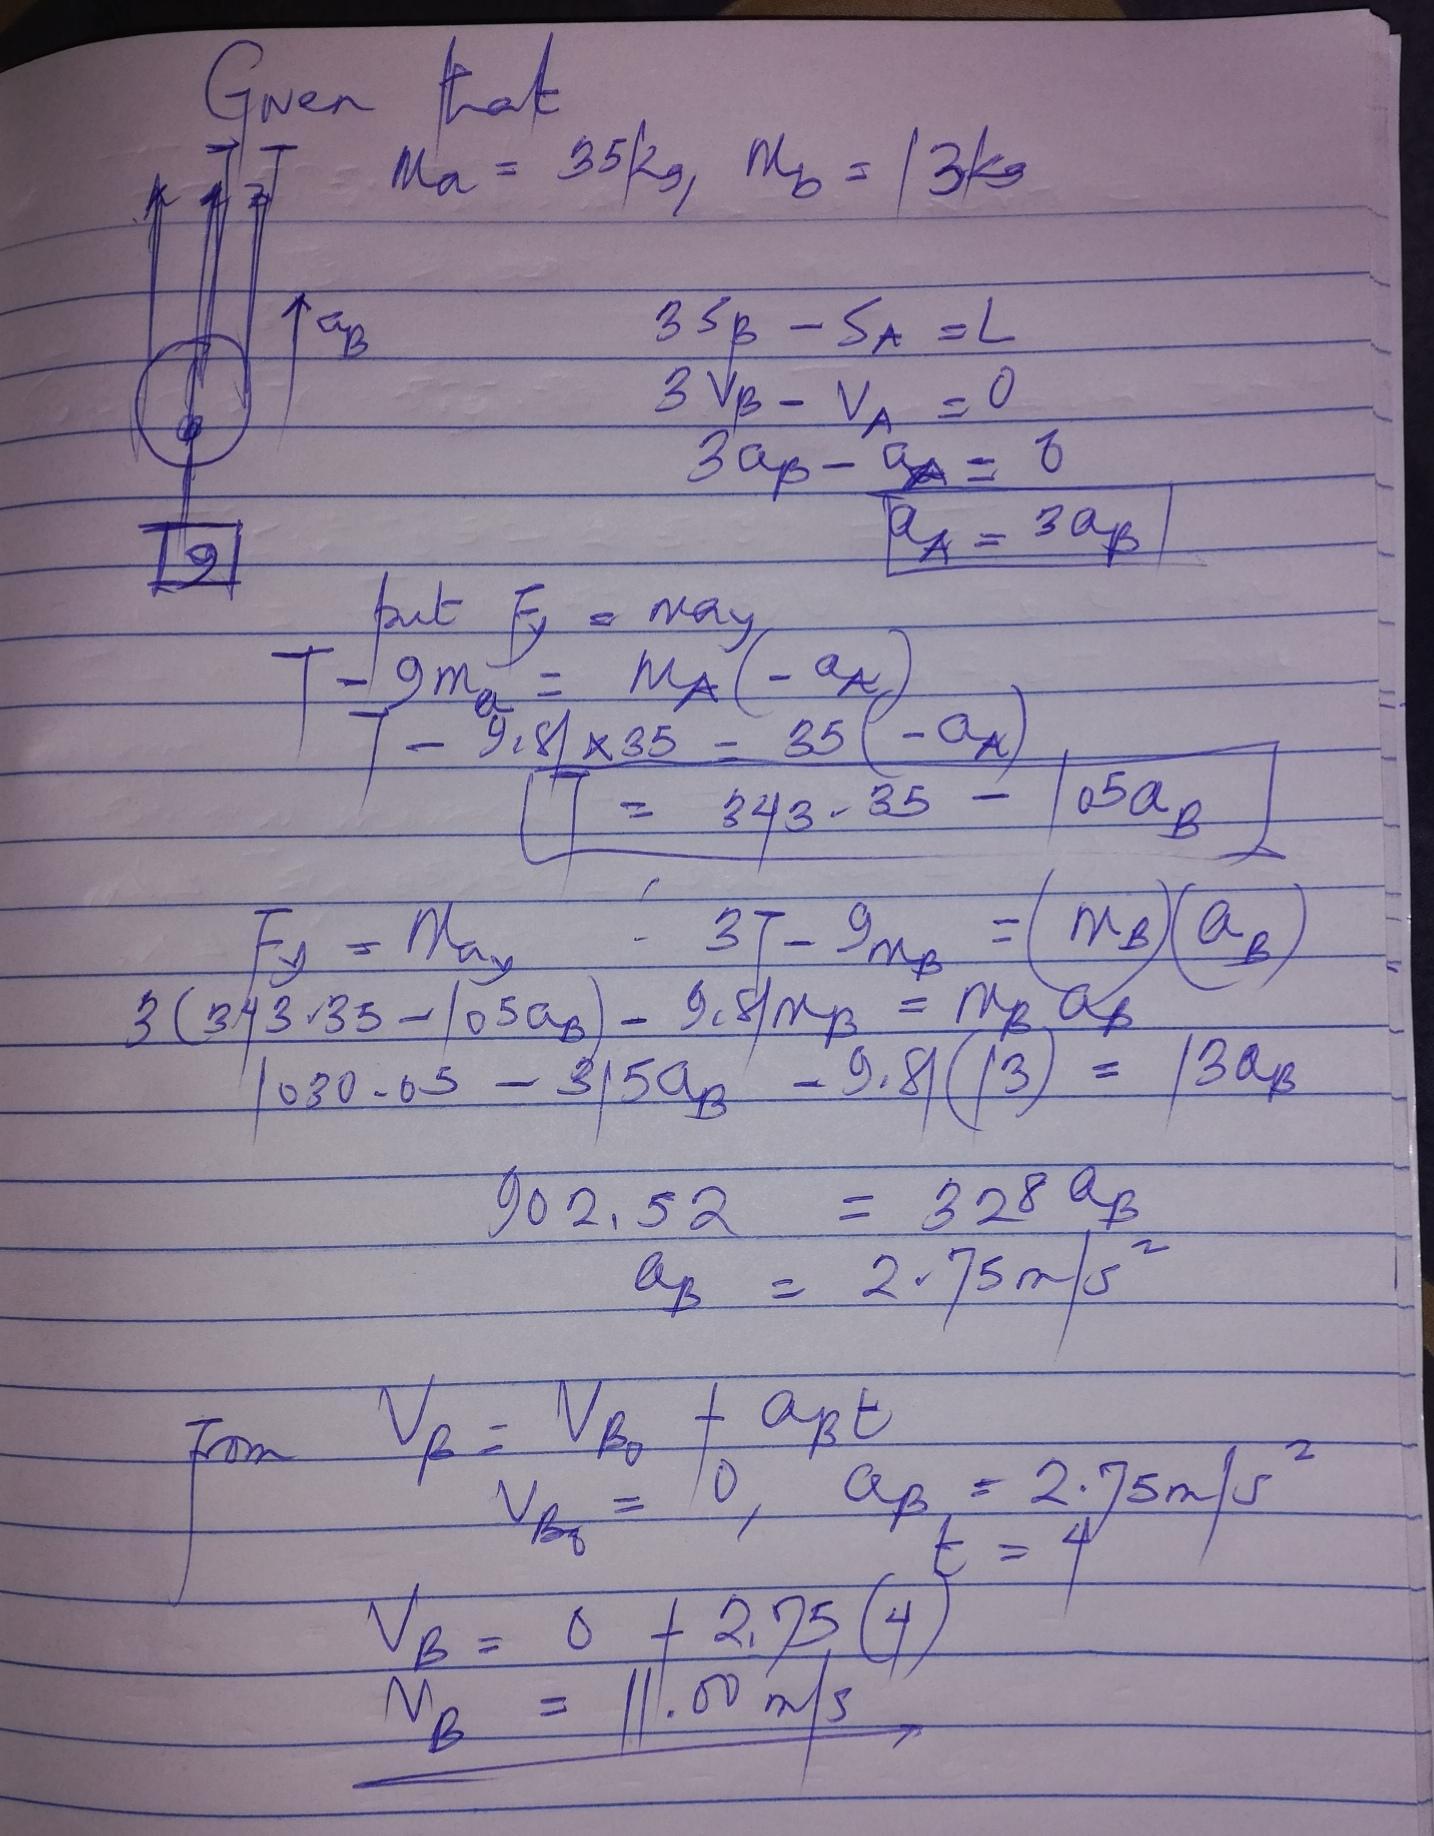 Given that
T T
Ma = 35kg, Mb = 13kg
aB
3SB - SA = L
3VB - VA = 0
3aB - aA = 0
aA = 3aB
9
put Fy = may
T - 9ma = MA(-aA)
T - 9.81×35 = 35(-aA)
T = 343.35 - 105aB
Fy = May 3T - 9mB = (mB)(aB)
3(343.35 - 105aB) - 9.81mB = mB aB
1030.05 - 315aB - 9.81(13) = 13aB
902.52 = 328aB
aB = 2.75m/s²
From VB = VB0 + aBt
VB0 = 0, aB = 2.75m/s²
t = 4
VB = 0 + 2.75(4)
VB = 11.00 m/s